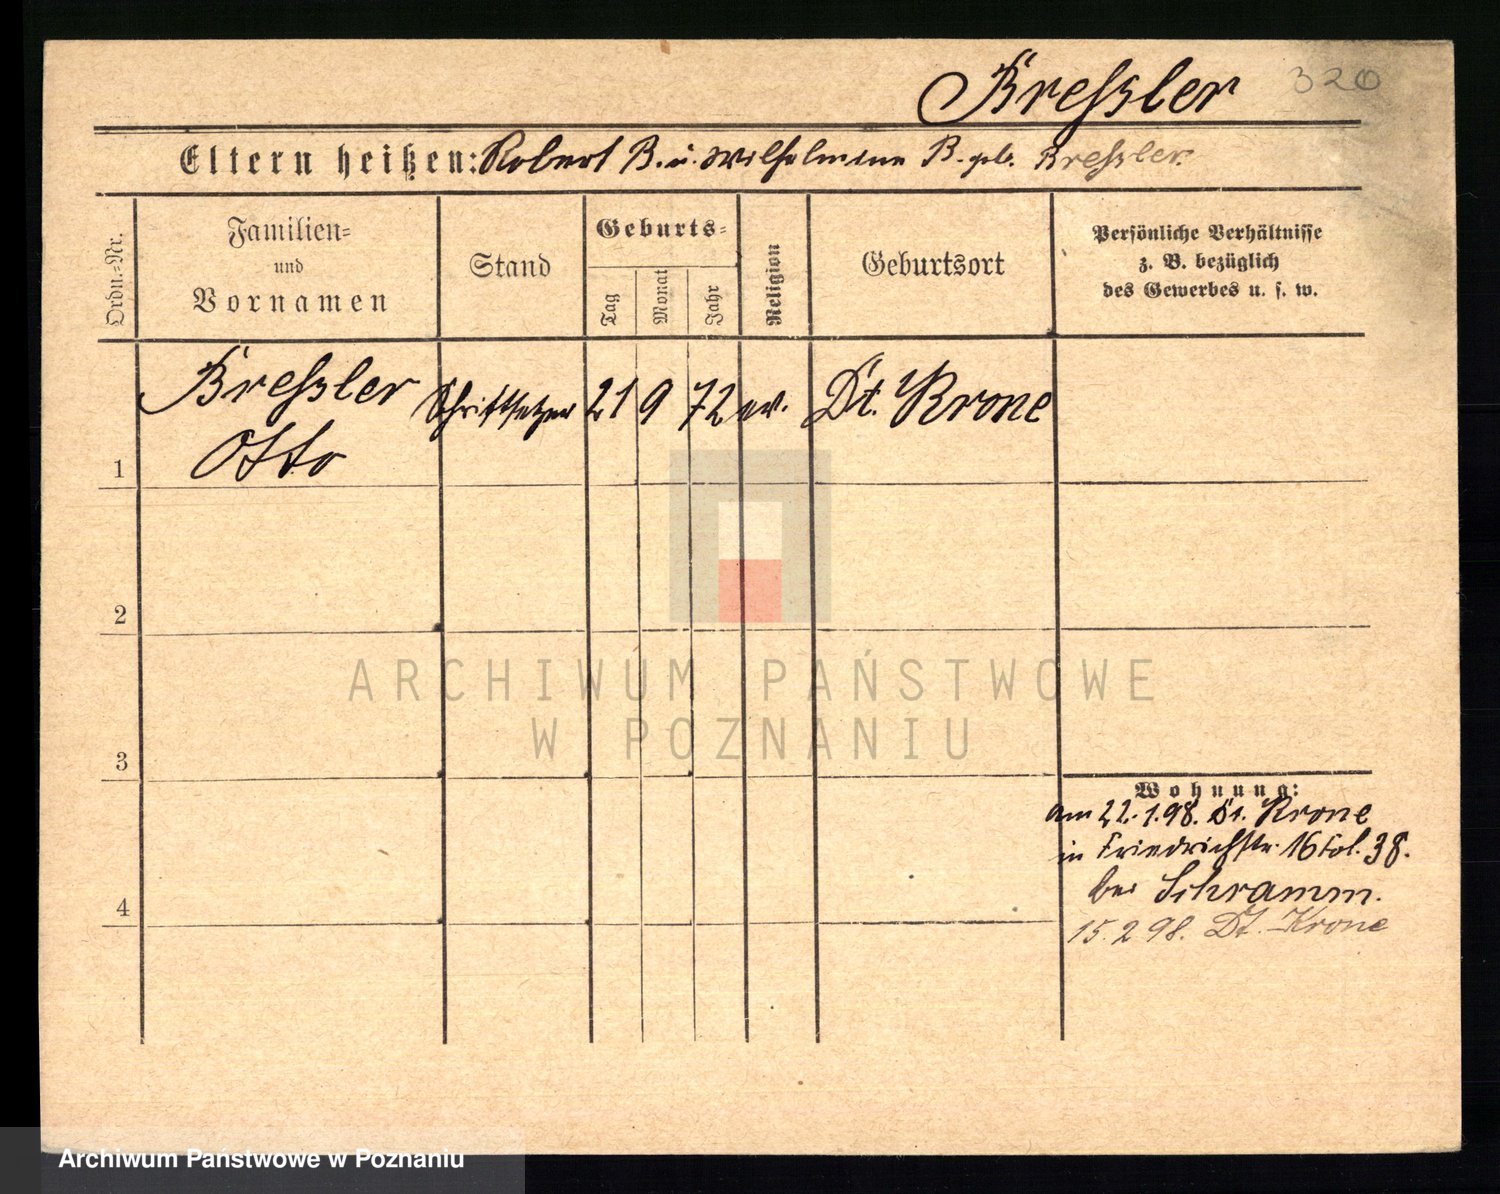 Bressler 320
Eltern heißen: Robert B. u. Wilhelmine B. geb. Bressler
Ordn.-Nr.
Familien-
und
Vornamen
Stand
Geburts-
Tag
Monat
Jahr
Religion
Geburtsort
Persönliche Verhältnisse
z. B. bezüglich
des Gewerbes u. s. w.
Bressler Schriftsetzer 21 9 72 ev. Dt. Krone
1 Otto
2
ARCHIWUM PAŃSTWOWE
W POZNANIU
3
Wohnung:
am 22.1.98. Dt. Krone
in Friedrichstr. 16 fol. 38.
bei Schramm.
4
15.2.98. Dt. Krone
Archiwum Państwowe w Poznaniu